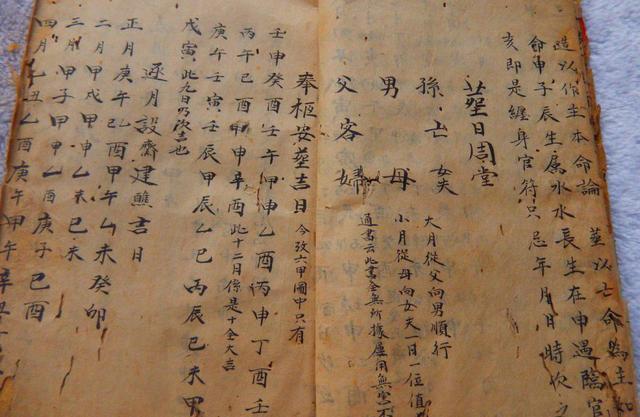 造以作主本命論 葬以亡命為主如
命申子辰生屬水水長生在申遇臨官
亥即是纏身官符只忌年月日時次之
葬日周堂
孫 亡 女夫 大月從父向男順行
男 母 小月從母向女夫一日一位值
父 客 婦 通書云此書全無所據屢用無害不
奉柩安葬吉日 今攷六甲圖中只有
壬申癸酉壬午甲申乙酉丙申丁酉壬
丙午己酉庚申辛酉 此十二日係是十全大吉
庚午壬寅壬辰甲辰乙巳丙辰己未甲
戊寅 此九日乃次吉也
逐月設齋建醮吉日
正月庚午乙酉甲午乙未癸卯
二月甲戌甲申乙未己未
三月甲子甲申乙酉庚子己酉
四月乙丑乙酉庚午甲午辛丑